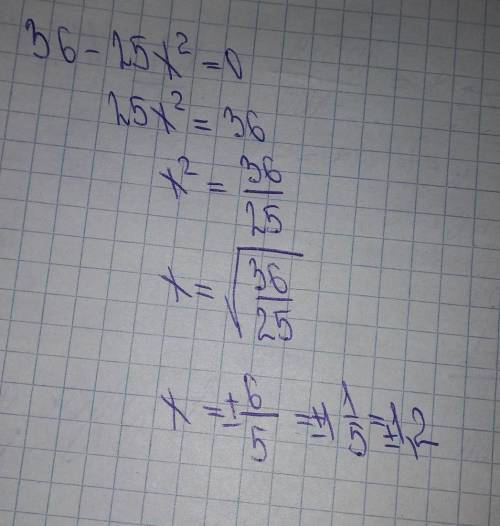 36 - 25x² = 0
25x² = 36
x² = 36/25
x = √(36/25)
x = ± 6/5 = ±1 1/5 = ±1,2